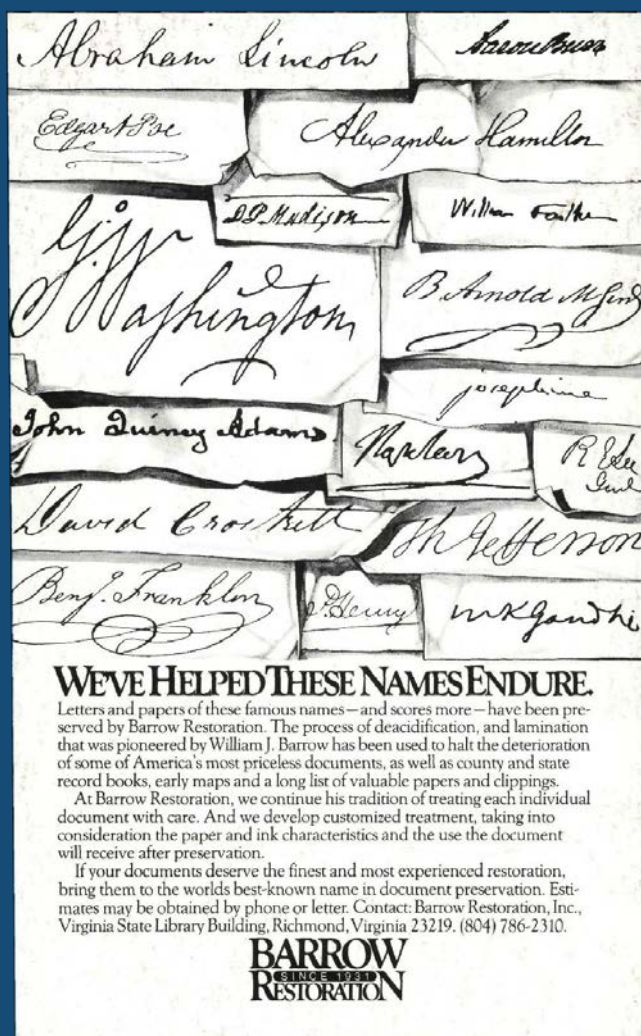 Abraham Lincoln
Aaron Burr
Edgar A Poe
Alexander Hamilton
D.P. Madison
William Faulkner
G. W
Washington
B. Arnold M Genl
josephine
John Quincy Adams
Napoleon
R E Lee
Genl
David Crockett
Th Jefferson
Benj. Franklin
P. Henry
MKGandhi
WE'VE HELPED THESE NAMES ENDURE.
Letters and papers of these famous names—and scores more—have been pre-
served by Barrow Restoration. The process of deacidification, and lamination
that was pioneered by William J. Barrow has been used to halt the deterioration
of some of America's most priceless documents, as well as county and state
record books, early maps and a long list of valuable papers and clippings.
At Barrow Restoration, we continue his tradition of treating each individual
document with care. And we develop customized treatment, taking into
consideration the paper and ink characteristics and the use the document
will receive after preservation.
If your documents deserve the finest and most experienced restoration,
bring them to the worlds best-known name in document preservation. Esti-
mates may be obtained by phone or letter. Contact: Barrow Restoration, Inc.,
Virginia State Library Building, Richmond, Virginia 23219. (804) 786-2310.
BARROW
SINCE 1931
RESTORATION